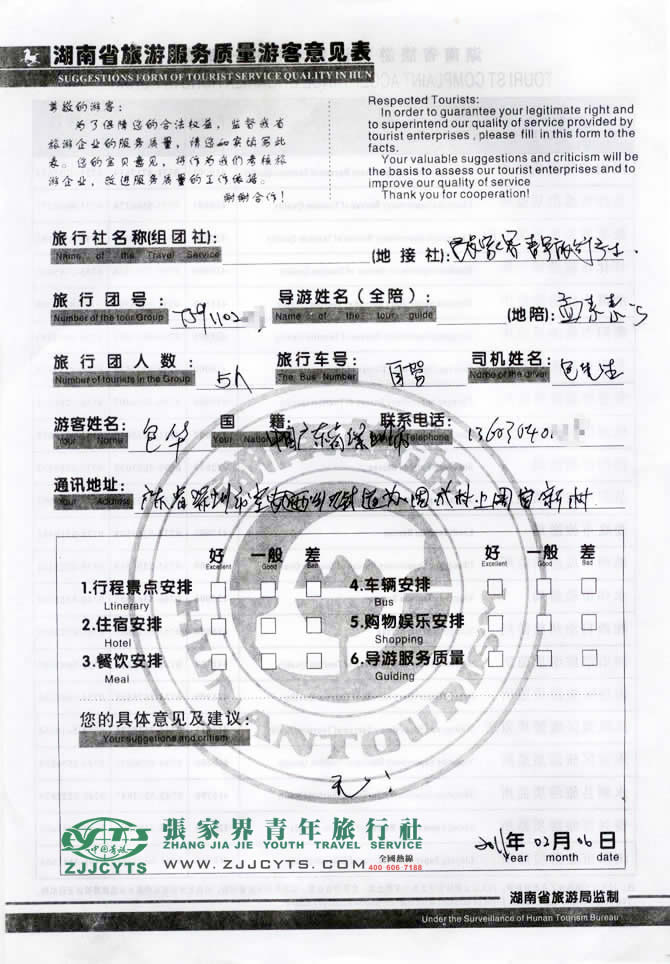 湖南省旅游服务质量游客意见表
SUGGESTIONS FORM OF TOURIST SERVICE QUALITY IN HUN
尊敬的游客:
为了保障您的合法权益，监督我省
旅游企业的服务质量，请您如实填写此
表。您的宝贝意见，将作为我们考核旅
游企业，改进服务质量的工作依据。
谢谢合作!
Respected Tourists:
In order to guarantee your legitimate right and
to superintend our quality of service provided by
tourist enterprises , please fill in this form to the
facts.
Your valuable suggestions and criticism will be
the basis to assess our tourist enterprises and to
improve our quality of service
Thank you for cooperation!
旅行社名称(组团社): (地接社):
Name of the Travel Service
旅行团号: 导游姓名(全陪): (地陪):
Number of the tour Group Name of the tour guide
旅行团人数: 5人 旅行车号: 自驾 司机姓名: 包先生
Number of tourists in the Group The Bus Number Name of the driver
游客姓名: 包华 国籍: 联系电话: 13603040
Your Name Your Nation Telephone
通讯地址: 广东省深圳市宝安
Your Address
好 一般 差 好 一般 差
Excellent Good Bad Excellent Good Bad
1.行程景点安排 4.车辆安排
Ltinerary Bus
2.住宿安排 5.购物娱乐安排
Hotel Shopping
3.餐饮安排 6.导游服务质量
Meal Guiding
HUNAN TOURISM
您的具体意见及建议:
Your suggetions and critism
无!
CYTS
中国青旅
ZJJCYTS
張家界青年旅行社
ZHANG JIA JIE YOUTH TRAVEL SERVICE
WWW.ZJJCYTS.COM 全國熱線
400 606 7188
2011年02月06日
Year month date
湖南省旅游局监制
Under the Surveillance of Hunan Tourism Bureau